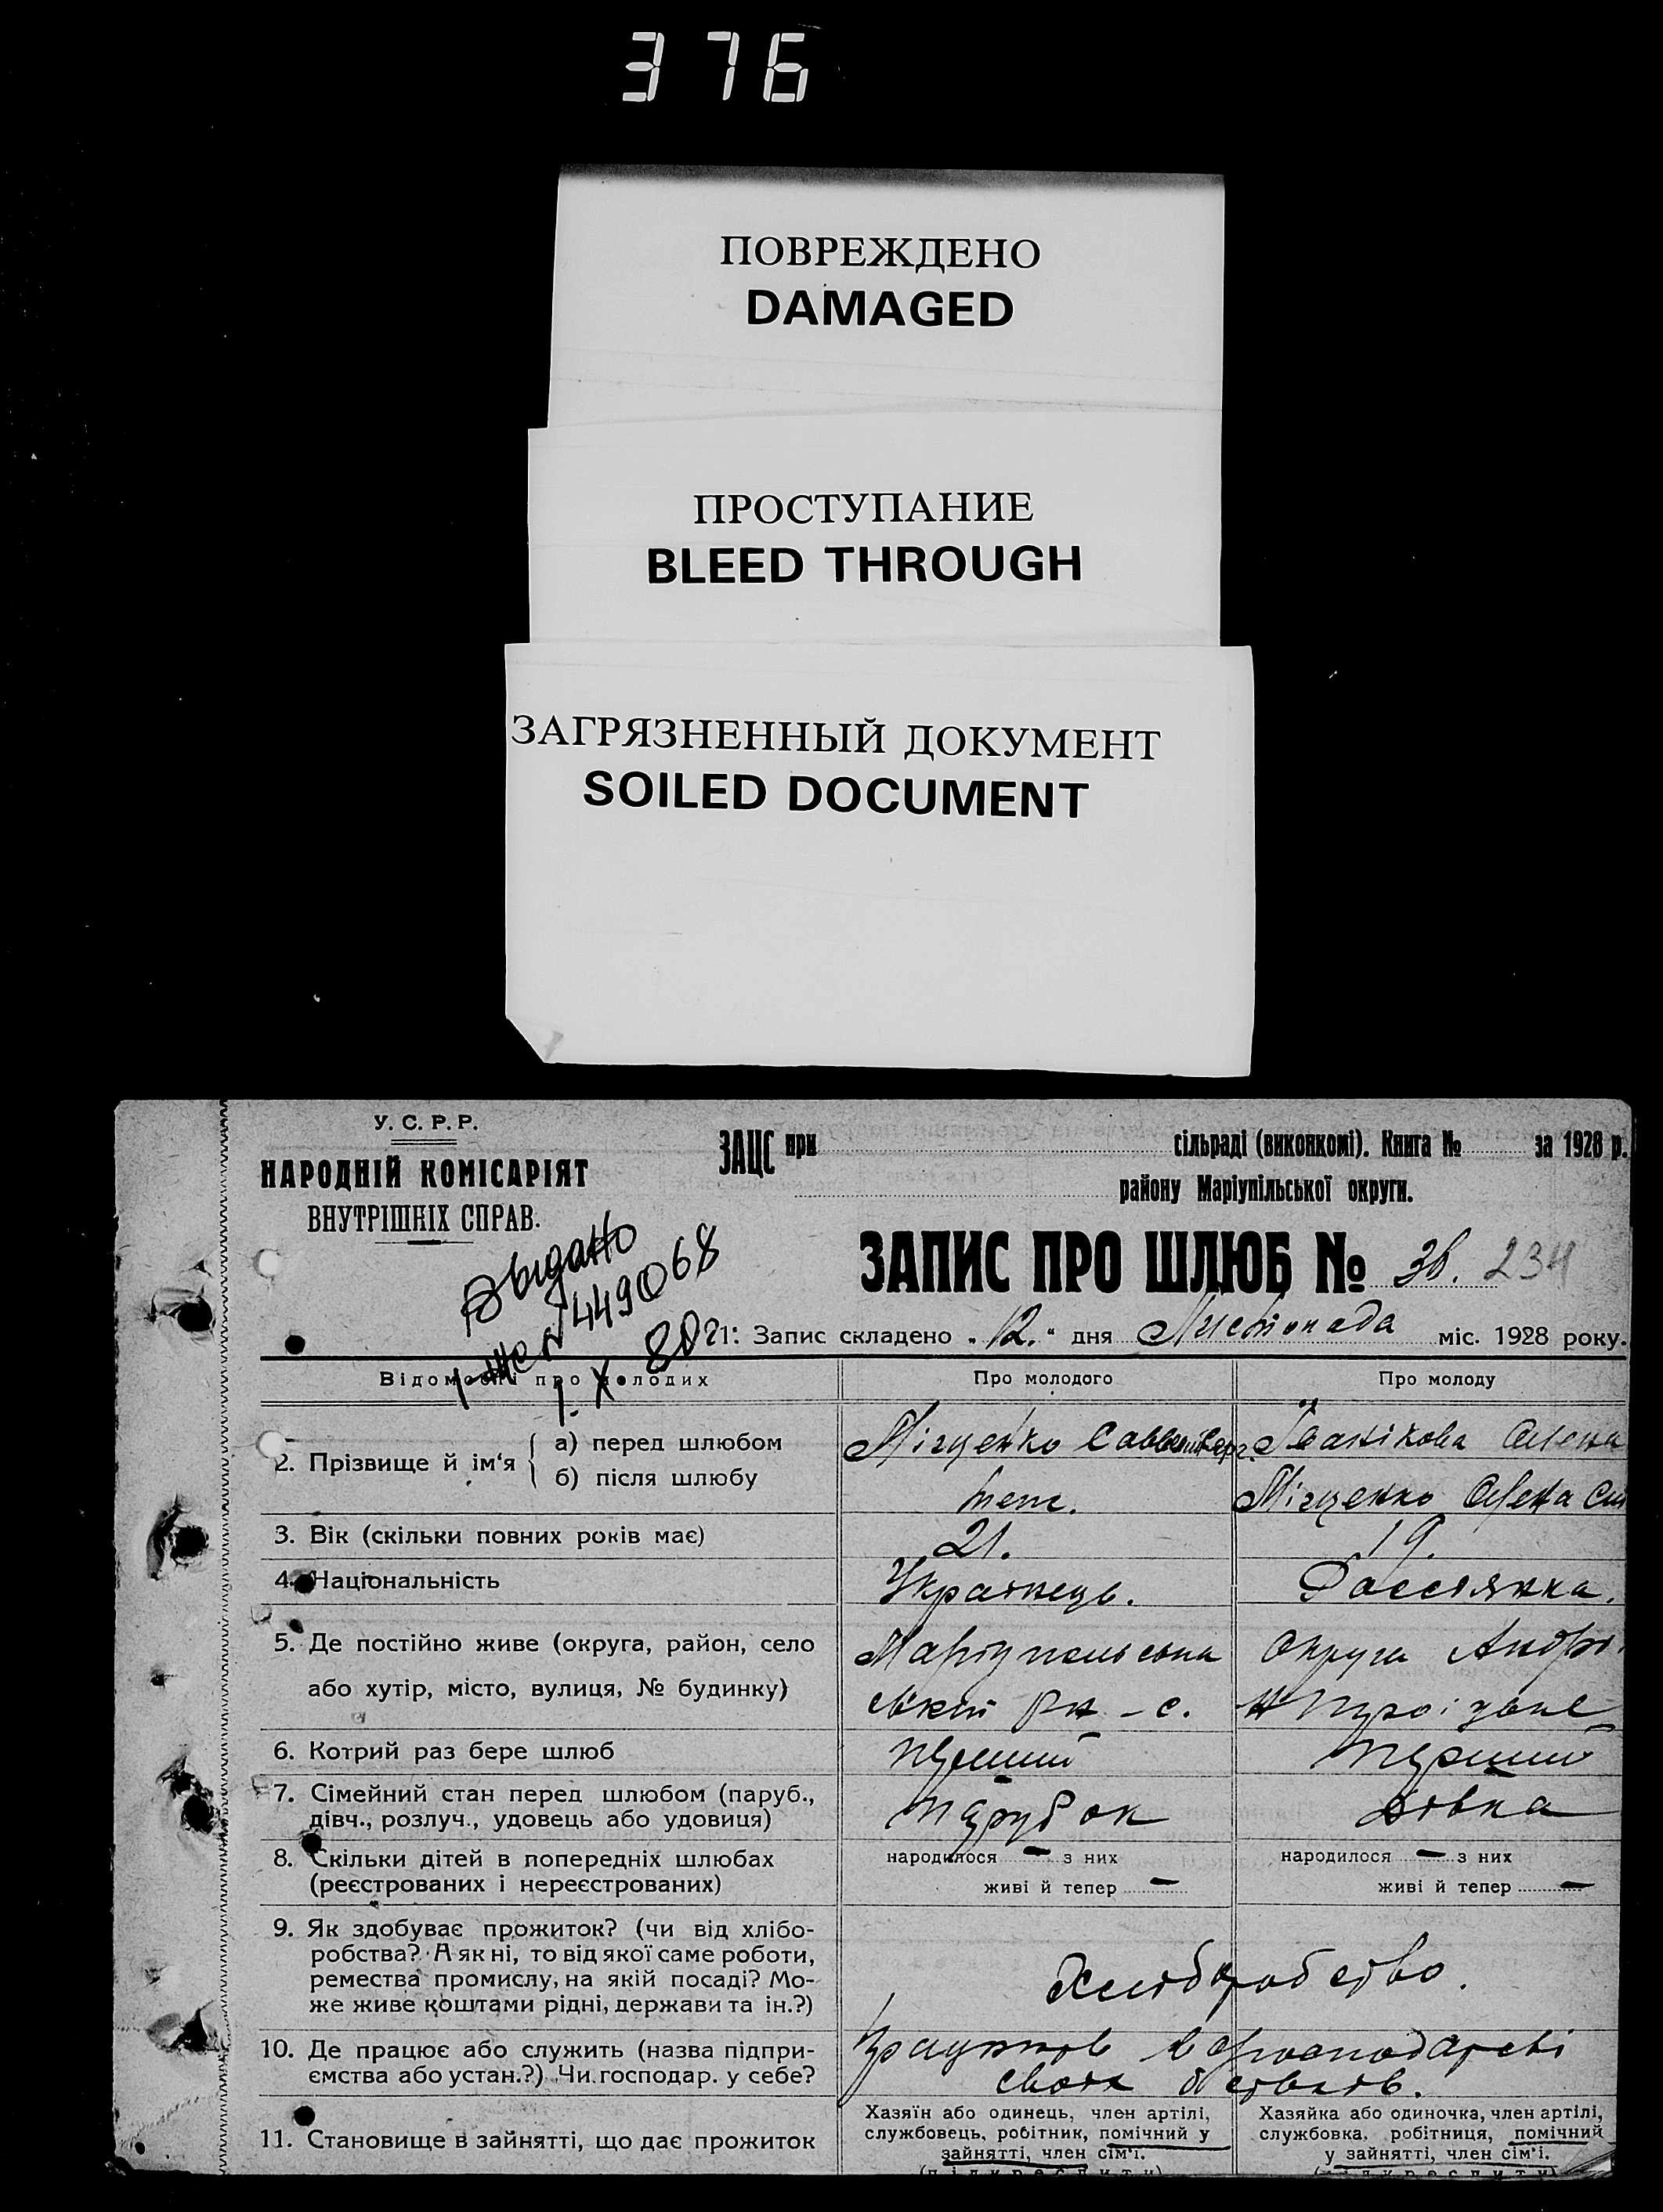 376
ПОВРЕЖДЕНО
DAMAGED
ПРОСТУПАНИЕ
BLEED THROUGH
ЗАГРЯЗНЕННЫЙ ДОКУМЕНТ
SOILED DOCUMENT
У. С. Р. Р.
НАРОДНІЙ КОМІСАРІЯТ
ВНУТРІШНІХ СПРАВ.
ЗАЦС при сільраді (виконкомі). Книга № за 1928 р.
району Маріупільської округи.
ЗАПИС ПРО ШЛЮБ № 36. 234
Выдано
449068
1. X 80
1. Запис складено „12.“ дня Листопада міс. 1928 року.
Відомості про молодих Про молодого Про молоду
2. Прізвище й ім‘я { а) перед шлюбом Олена
б) після шлюбу Олена
3. Вік (скільки повних років має) 21. 19.
4. Національність Українець. Россіянка.
5. Де постійно живе (округа, район, село Маріупольська Округа
або хутір, місто, вулиця, № будинку) с.
6. Котрий раз бере шлюб перший перший
7. Сімейний стан перед шлюбом (паруб., дівч., розлуч., удовець або удовиця) парубок дівка
8. Скільки дітей в попередніх шлюбах народилося — з них народилося — з них
(реєстрованих і нереєстрованих) живі й тепер — живі й тепер —
9. Як здобуває прожиток? (чи від хлібо-
робства? А як ні, то від якої саме роботи,
ремества промислу, на якій посаді? Мо-
же живе коштами рідні, держави та ін.?)
Хліборобство.
10. Де працює або служить (назва підпри-
ємства або устан.?) Чи господар. у себе?
господарстві
своїх батьків.
11. Становище в зайнятті, що дає прожиток
Хазяїн або одинець, член артілі,
службовець, робітник, помічний у
зайнятті, член сім‘ї.
(підкреслити)
Хазяйка або одиночка, член артілі,
службовка, робітниця, помічний
у зайнятті, член сім‘ї.
(підкреслити)